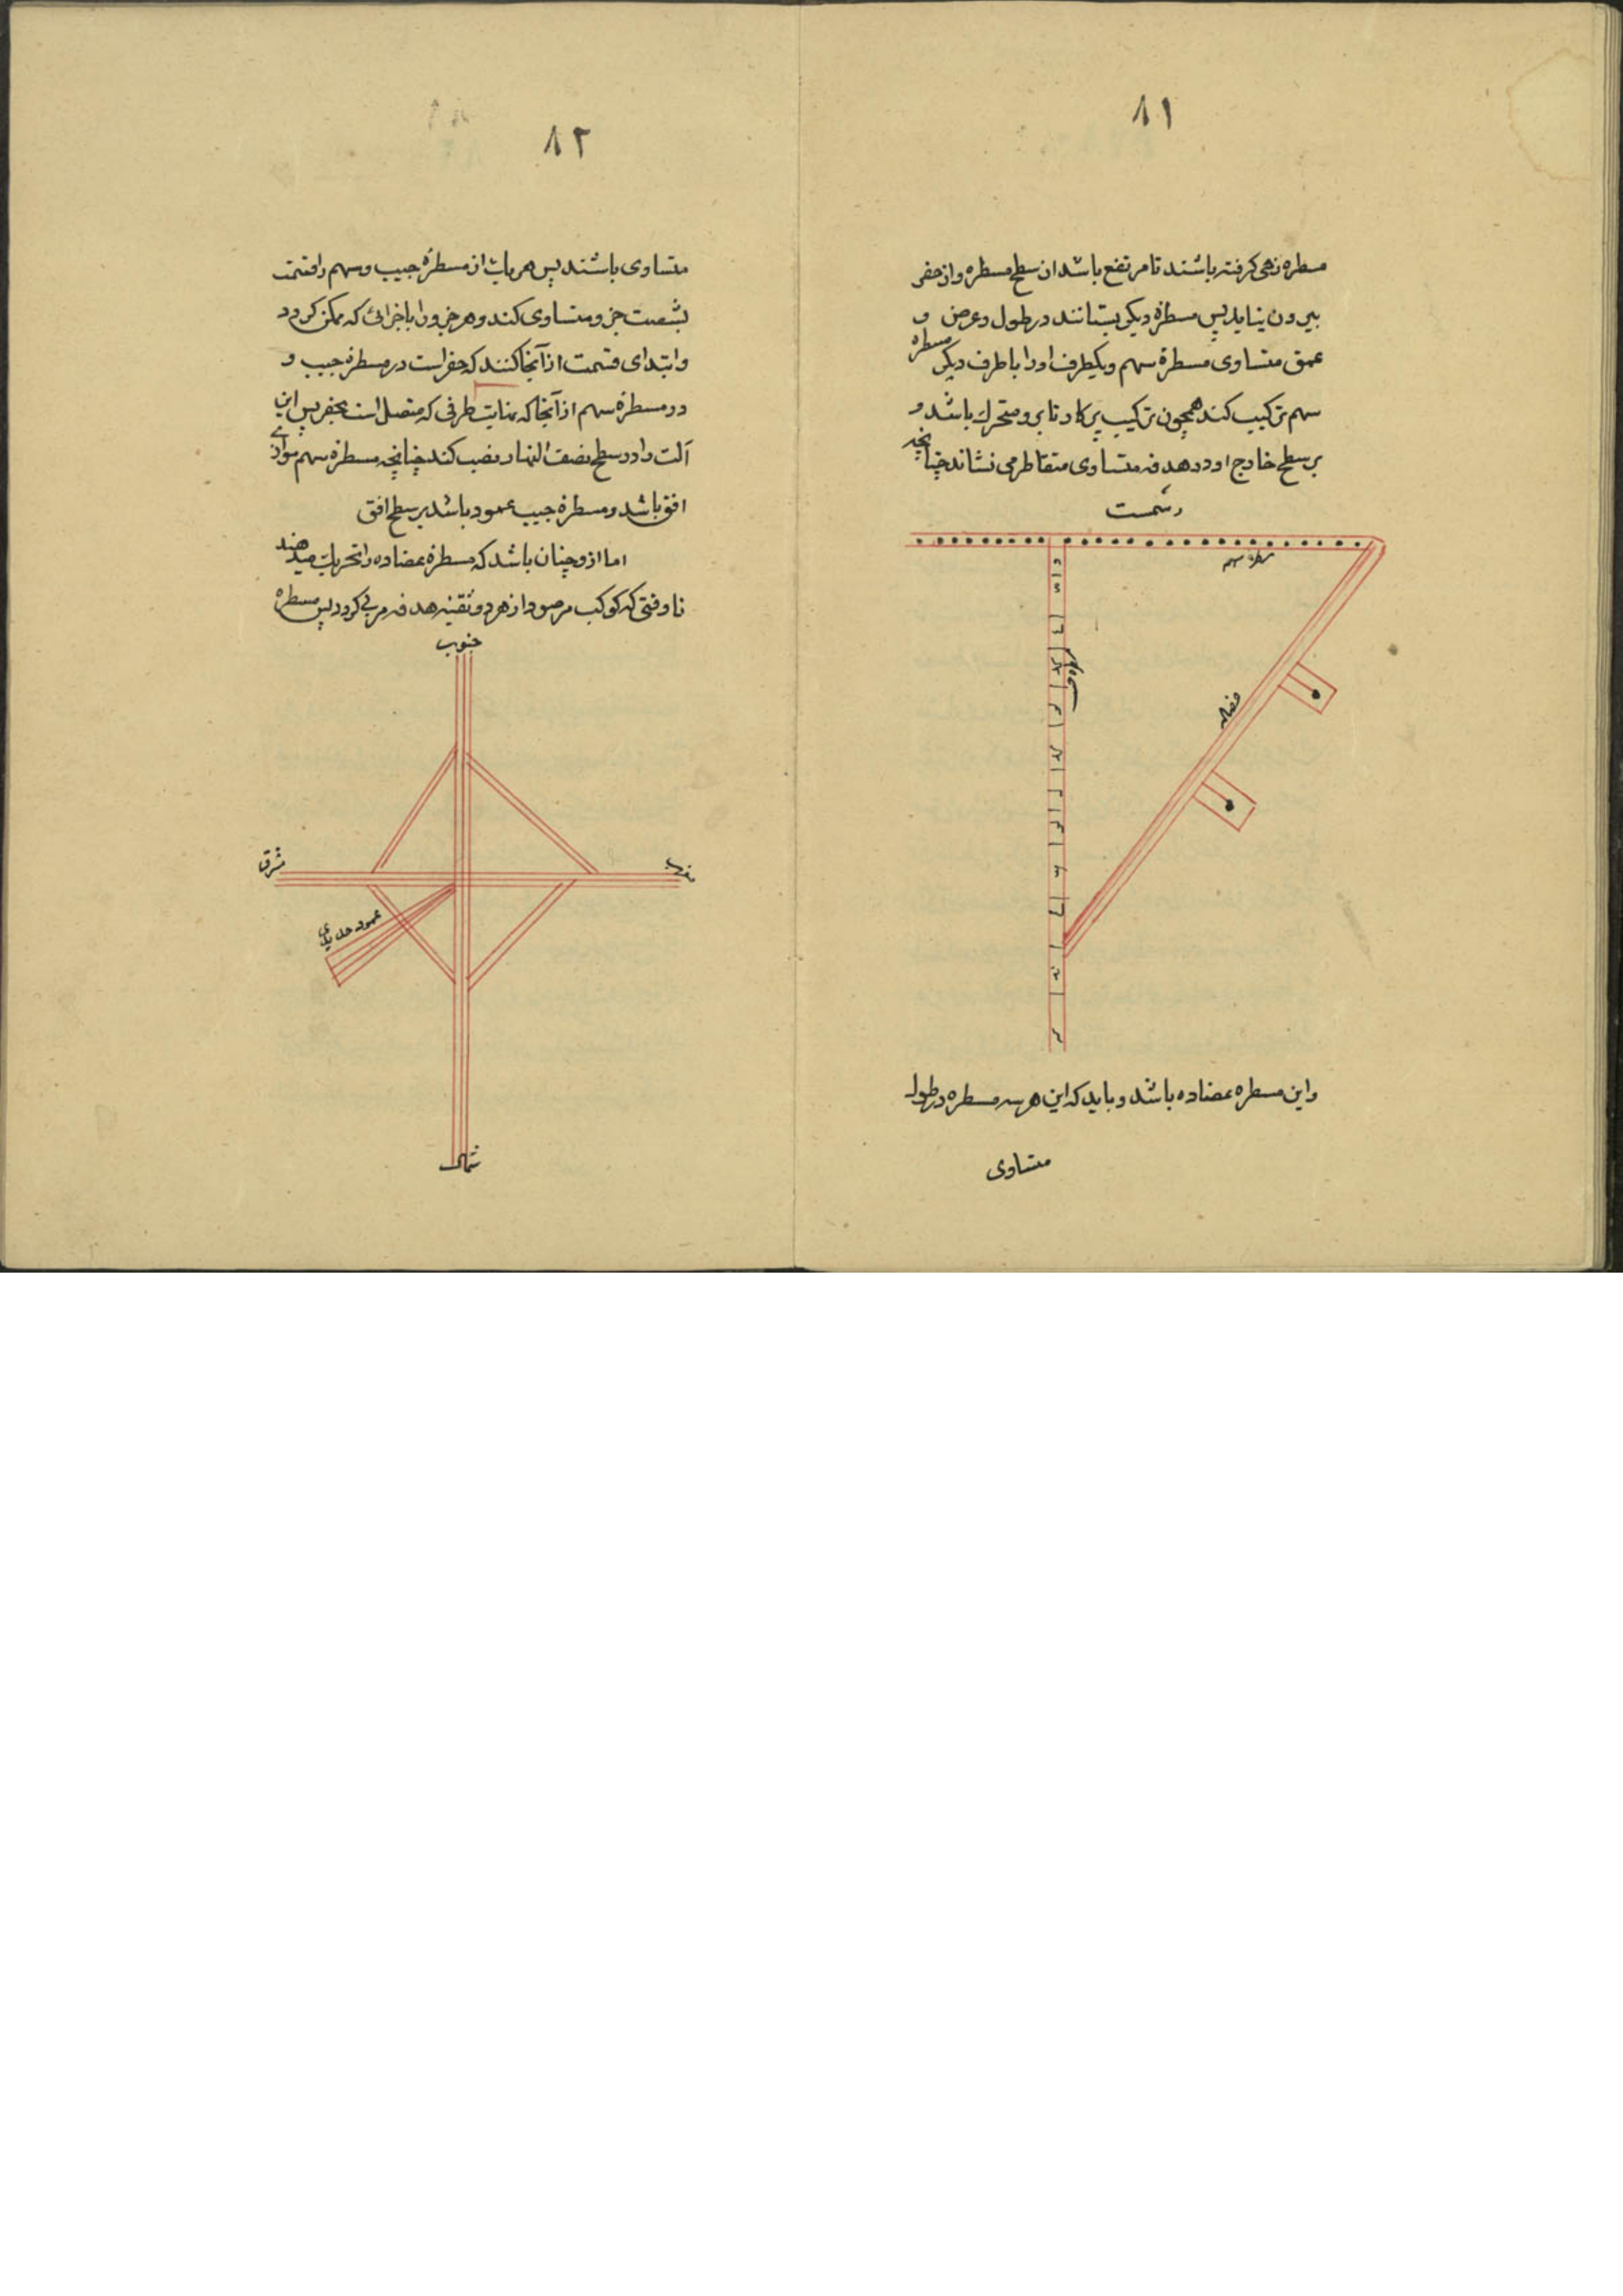 ۸۱
مسطره زهی گرفته باشند تا مرتفع باشد از سطح مسطره و از حفر
بیرون نیاید پس مسطرهٔ دیگر بستانند در طول و عرض و
عمق متساوی مسطرهٔ سهم و یکطرف او را با طرف دیگر مسطره
سهم ترکیب کند همچون ترکیب پرکار تا بر و متحرک باشد و
بر سطح خارج او دو هدفه متساوی متقاطر می نشاند چنانچه
رسمست
مسطره سهم
عضاده
و این مسطره عضاده باشد و باید که این هر سه مسطره در طول
متساوی
۸۲
متساوی باشند پس هر یک از مسطرهٔ جیب و سهم را قسمت
بشصت جزو متساوی کند و هر جزو را باجزائی که ممکن گردد
و ابتدای قسمت از آنجا کنند که حفر است در مسطرهٔ جیب و
در مسطرهٔ سهم از آنجا که نهایت طرفی که متصل است بحفر پس این
آلت را در سطح نصف النهار نصب کند چنانچه مسطرهٔ سهم موازی
افق باشد و مسطرهٔ جیب عمود باشد بر سطح افق
اما از و چنان باشد که مسطرهٔ عضاده را تحریک میدهند
تا وقتی که کوکب مرصود از هر دو ثقبهٔ هدفه مرئی گردد پس مسطره
جنوب
مشرق
مغرب
عمود حدیدی
شمال